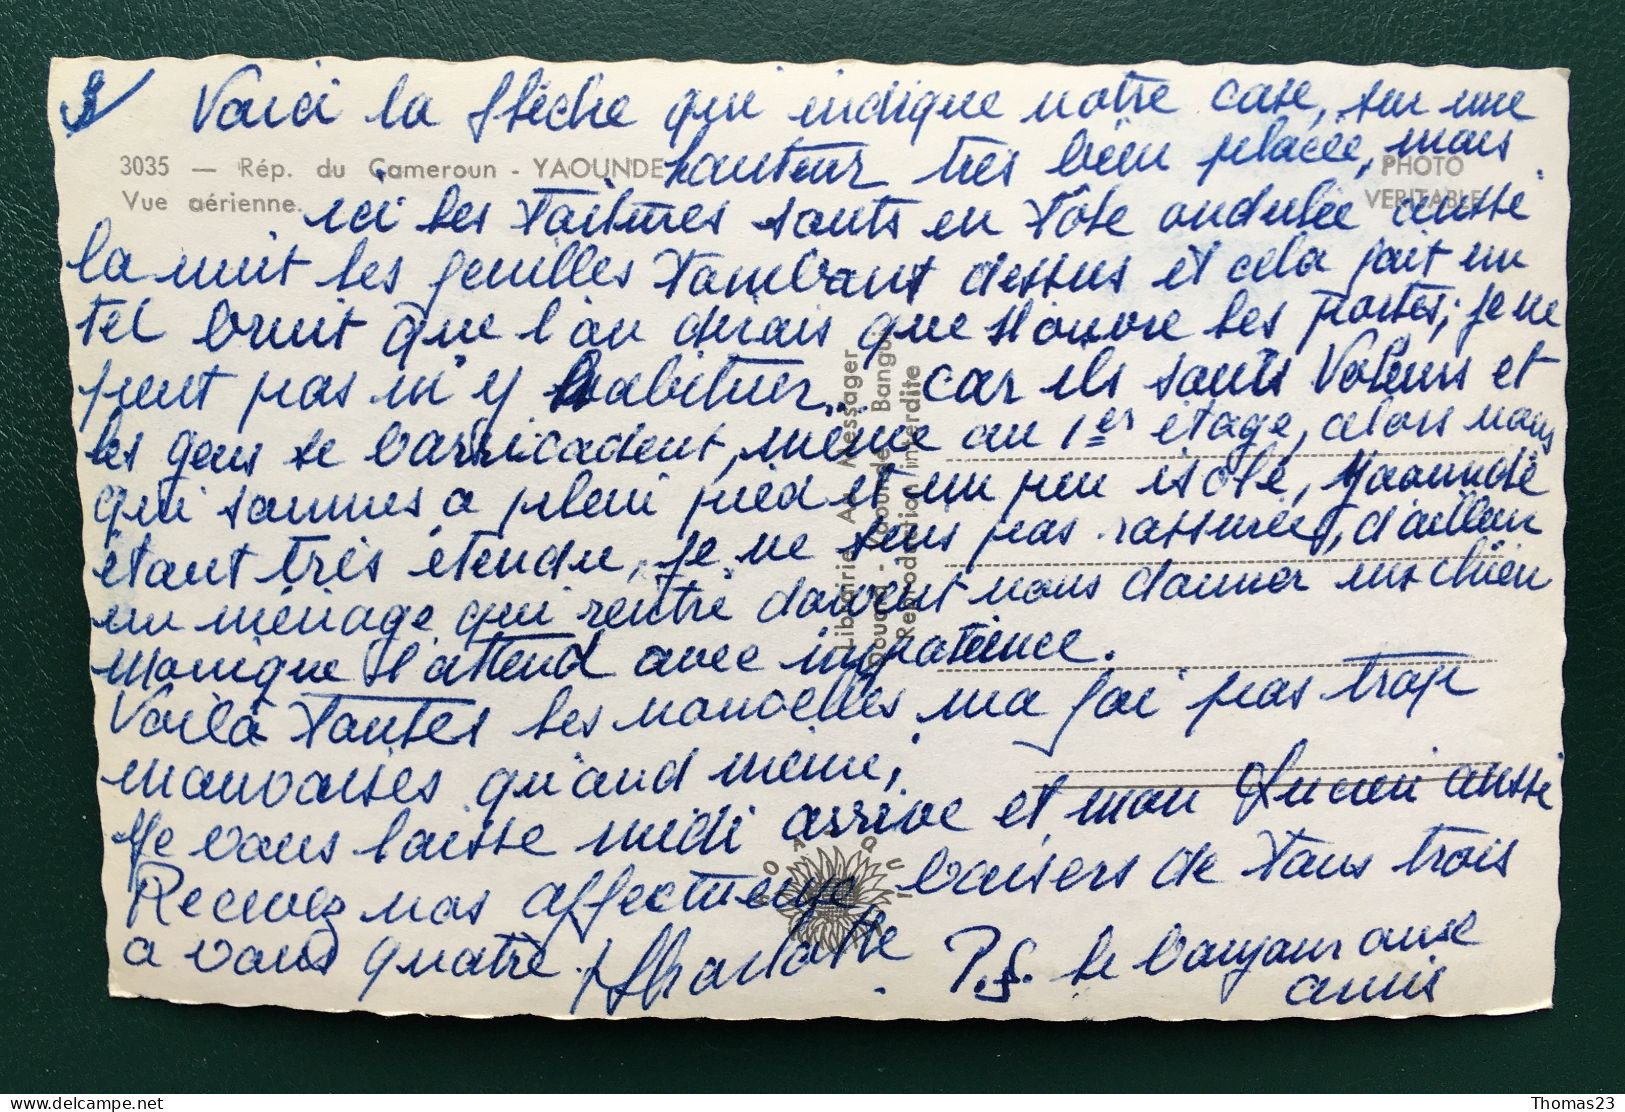 3/ Voici la flèche qui indique notre case, sur une
3035 — Rép. du Cameroun - YAOUNDE
hauteur très bien placée, mais
PHOTO
VERITABLE
Vue aérienne.
ici les toitures sonts en tôle ondulée aussi
la nuit les feuilles tombant dessus et cela fait un
tel bruit que l'on dirais que s'ouvre les portes, je ne
peut pas m'y habituer... car ils sonts voleurs et
les gens se barricadent, même au 1er étage, alors nous
qui sommes a plein pied et un peu isolé, Yaoundé
étant très étendu, je ne suis pas rassurée, d'ailleur
un ménage qui rentre doivent nous donner un chien
Monique l'attend avec impatience.
Voilà toutes les nouvelles, ma foi pas trop
mauvaises quand même,
Je vous laisse midi arrive et mon aussi
Recevez nos affectueux baisers de tous trois
a vous quatre.
P.S. le bonjour aux
amis
Librairie Au Messager
Douala - Yaoundé - Bangui
Reproduction interdite
Thomas23